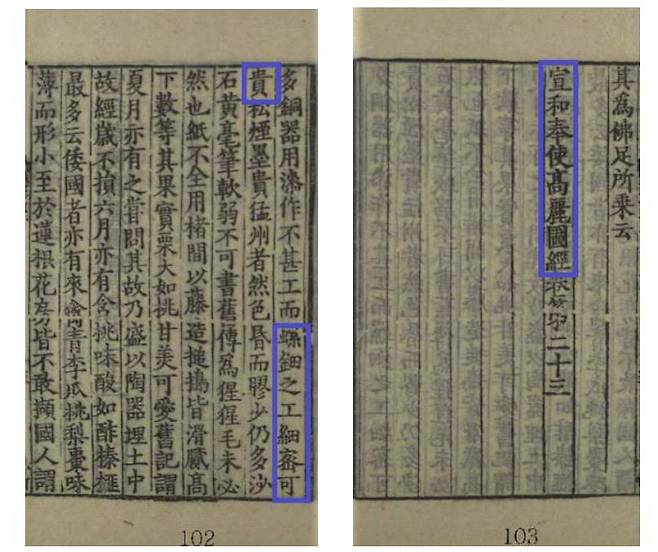 多銅器用漆作不甚工而螺鈿之工細密可
貴松煙墨貴猛州者然色昏而膠少仍多沙
石黃毫筆軟弱不可書舊傳爲猩猩毛未必
然也紙不全用楮間以藤造搥搗皆滑膩高
下數等其果實栗大如桃甘美可愛舊記謂
夏月亦有之嘗問其故乃盛以陶器埋土中
故經歲不損六月亦有含桃味酸如酢榛榧
最多云倭國者亦有來禽青李瓜桃梨棗味
薄而形小至於蓮根花房皆不敢擷國人謂
102
其為佛足所乘云
宣和奉使高麗國經卷第二十三
103